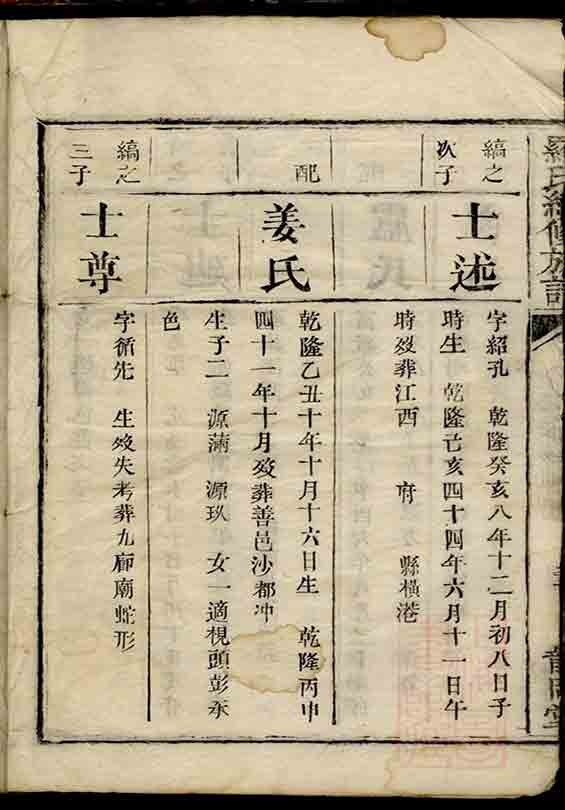 羅氏續修族譜
縞之
次子
士述
字紹孔 乾隆癸亥八年十二月初八日子
時生 乾隆己亥四十四年六月十一日午
時歿葬江西 府 縣橫港
配
姜氏
乾隆乙丑十年十月十六日生 乾隆丙申
四十一年十月歿葬善邑沙都冲
生子二 源滿 源玖 女一適梘頭彭永
色
縞之
三子
士尊
字循先 生歿失考葬九廊廟蛇形